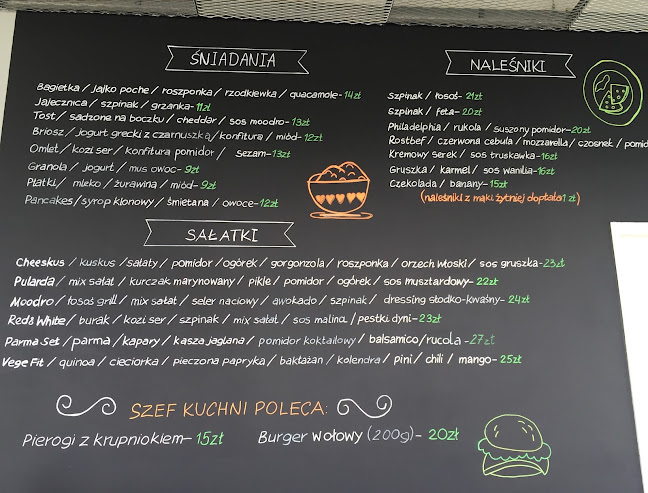 ŚNIADANIA
Bagietka / jajko poche / roszponka / rzodkiewka / quacamole- 14zł
Jajecznica / szpinak / grzanka- 11zł
Tost / sadzone na boczku / cheddar / sos moodro- 13zł
Briosz / jogurt grecki z czarnuszką / konfitura / miód- 12zł
Omlet / kozi ser / konfitura pomidor / sezam- 13zł
Granola / jogurt / mus owoc- 9zł
Płatki / mleko / żurawina / miód- 9zł
Pancakes / syrop klonowy / śmietana / owoce- 12zł
NALEŚNIKI
Szpinak / łosoś- 21zł
Szpinak / feta- 20zł
Philadelphia / rukola / suszony pomidor- 20zł
Rostbef / czerwona cebula / mozzarella / czosnek / pomid
Kremowy serek / sos truskawka- 16zł
Gruszka / karmel / sos wanilia- 16zł
Czekolada / banany- 15zł
(naleśniki z mąki żytniej dopłata 1 zł)
SAŁATKI
Cheeskus / kuskus / sałaty / pomidor / ogórek / gorgonzola / roszponka / orzech włoski / sos gruszka- 23zł
Pularda / mix sałat / kurczak marynowany / pikle / pomidor / ogórek / sos musztardowy- 22zł
Moodro / łosoś grill / mix sałat / seler naciowy / awokado / szpinak / dressing słodko-kwaśny- 24zł
Red&White / burak / kozi ser / szpinak / mix sałat / sos malina / pestki dyni- 23zł
Parma Set / parma / kapary / kasza jaglana / pomidor koktailowy / balsamico / rucola - 27zł
Vege Fit / quinoa / cieciorka / pieczona papryka / bakłażan / kolendra / pini / chili / mango- 25zł
SZEF KUCHNI POLECA:
Pierogi z krupniokiem- 15zł
Burger wołowy (200g)- 20zł